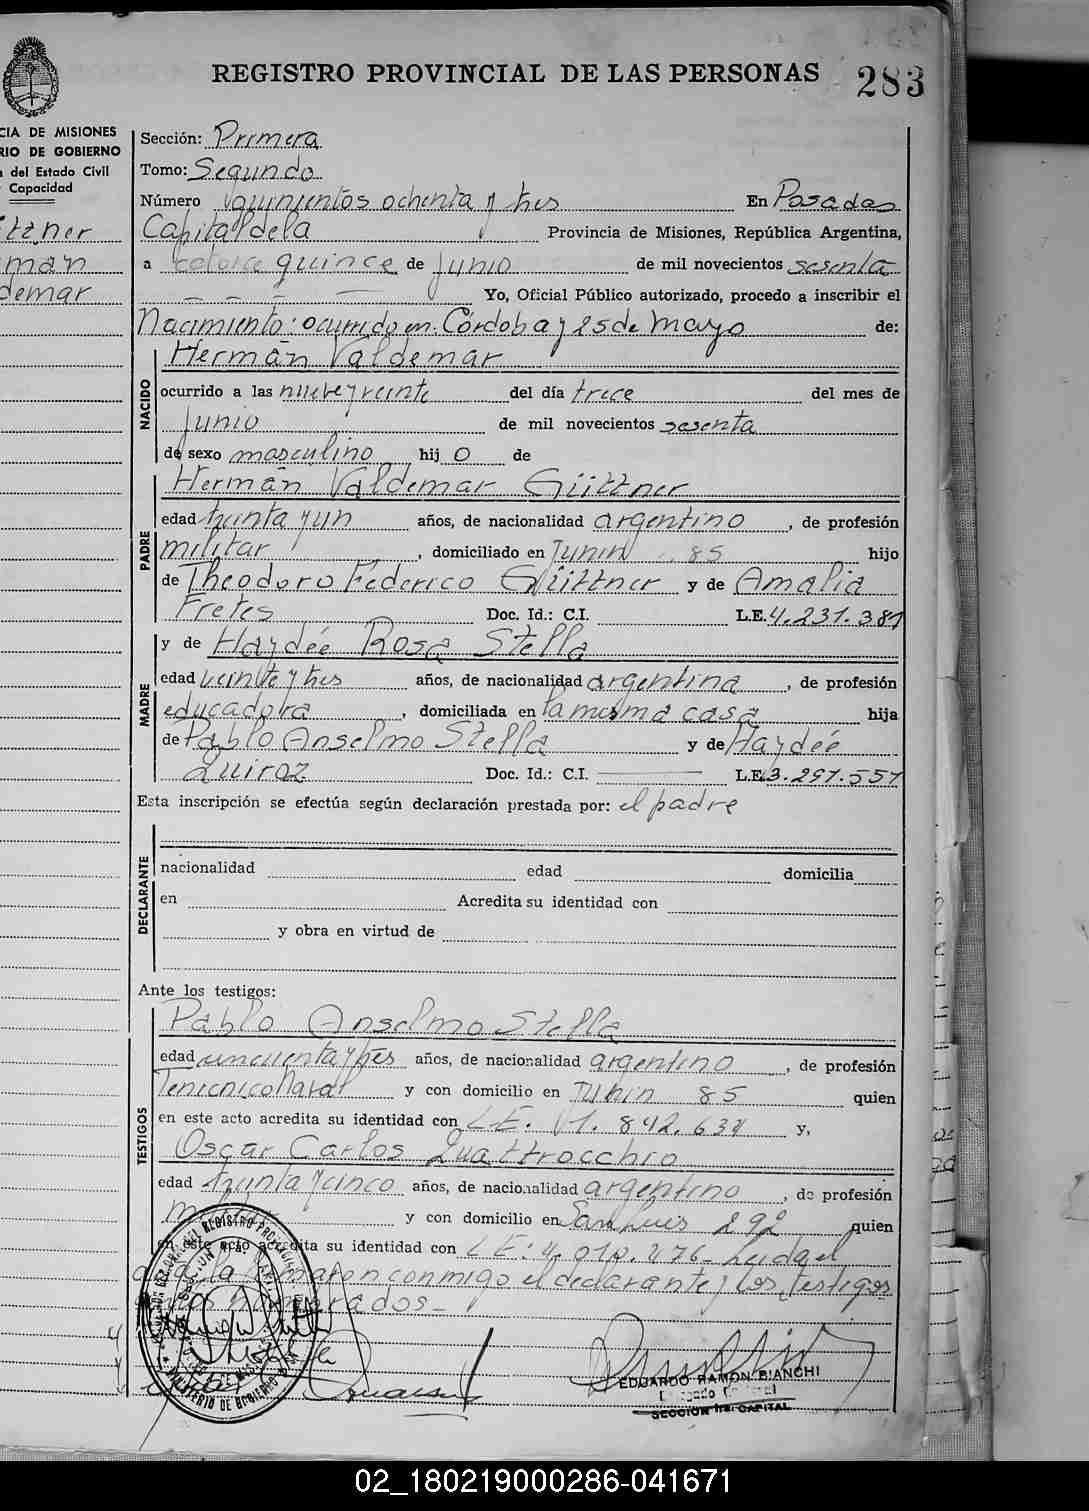 REGISTRO PROVINCIAL DE LAS PERSONAS 283
CIA DE MISIONES
RIO DE GOBIERNO
del Estado Civil
Capacidad
ttner
man
demar
Sección: Primera
Tomo: Segundo
Número quinientos ochenta y tres En Posadas
Capital de la Provincia de Misiones, República Argentina,
a catorce quince de junio de mil novecientos sesenta
Yo, Oficial Público autorizado, procedo a inscribir el
Nacimiento: ocurrido en Córdoba y 25 de Mayo de:
NACIDO
Hermán Valdemar
ocurrido a las nueve y veinte del día trece del mes de
junio de mil novecientos sesenta
de sexo masculino hij o de
PADRE
Hermán Valdemar Güttner
edad treinta y un años, de nacionalidad argentino, de profesión
militar, domiciliado en Junin 85 hijo
de Theodoro Federico Güttner y de Amalia
Fretes Doc. Id.: C.I. L.E. 4.231.381
MADRE
y de Haydée Rosa Stella
edad veinte y tres años, de nacionalidad argentina, de profesión
educadora, domiciliada en la misma casa hija
de Pablo Anselmo Stella y de Haydée
Quiroz Doc. Id.: C.I. L.E. 3.297.557
Esta inscripción se efectúa según declaración prestada por: el padre
DECLARANTE
nacionalidad edad domicilia
en Acredita su identidad con
y obra en virtud de
Ante los testigos:
TESTIGOS
Pablo Anselmo Stella
edad cincuenta y tres años, de nacionalidad argentino, de profesión
y con domicilio en Junin 85 quien
en este acto acredita su identidad con L.E. 1.842.634 y,
Oscar Carlos Quattrocchio
edad treinta y cinco años, de nacionalidad argentino, de profesión
y con domicilio en San Luis 292 quien
en este acto acredita su identidad con L.E: 4.010.276_ Leida el
acta la firmaron conmigo el declarante y los testigos
nombrados_
EDUARDO RAMON BIANCHI
SECCION 1ra. CAPITAL
02_180219000286-041671